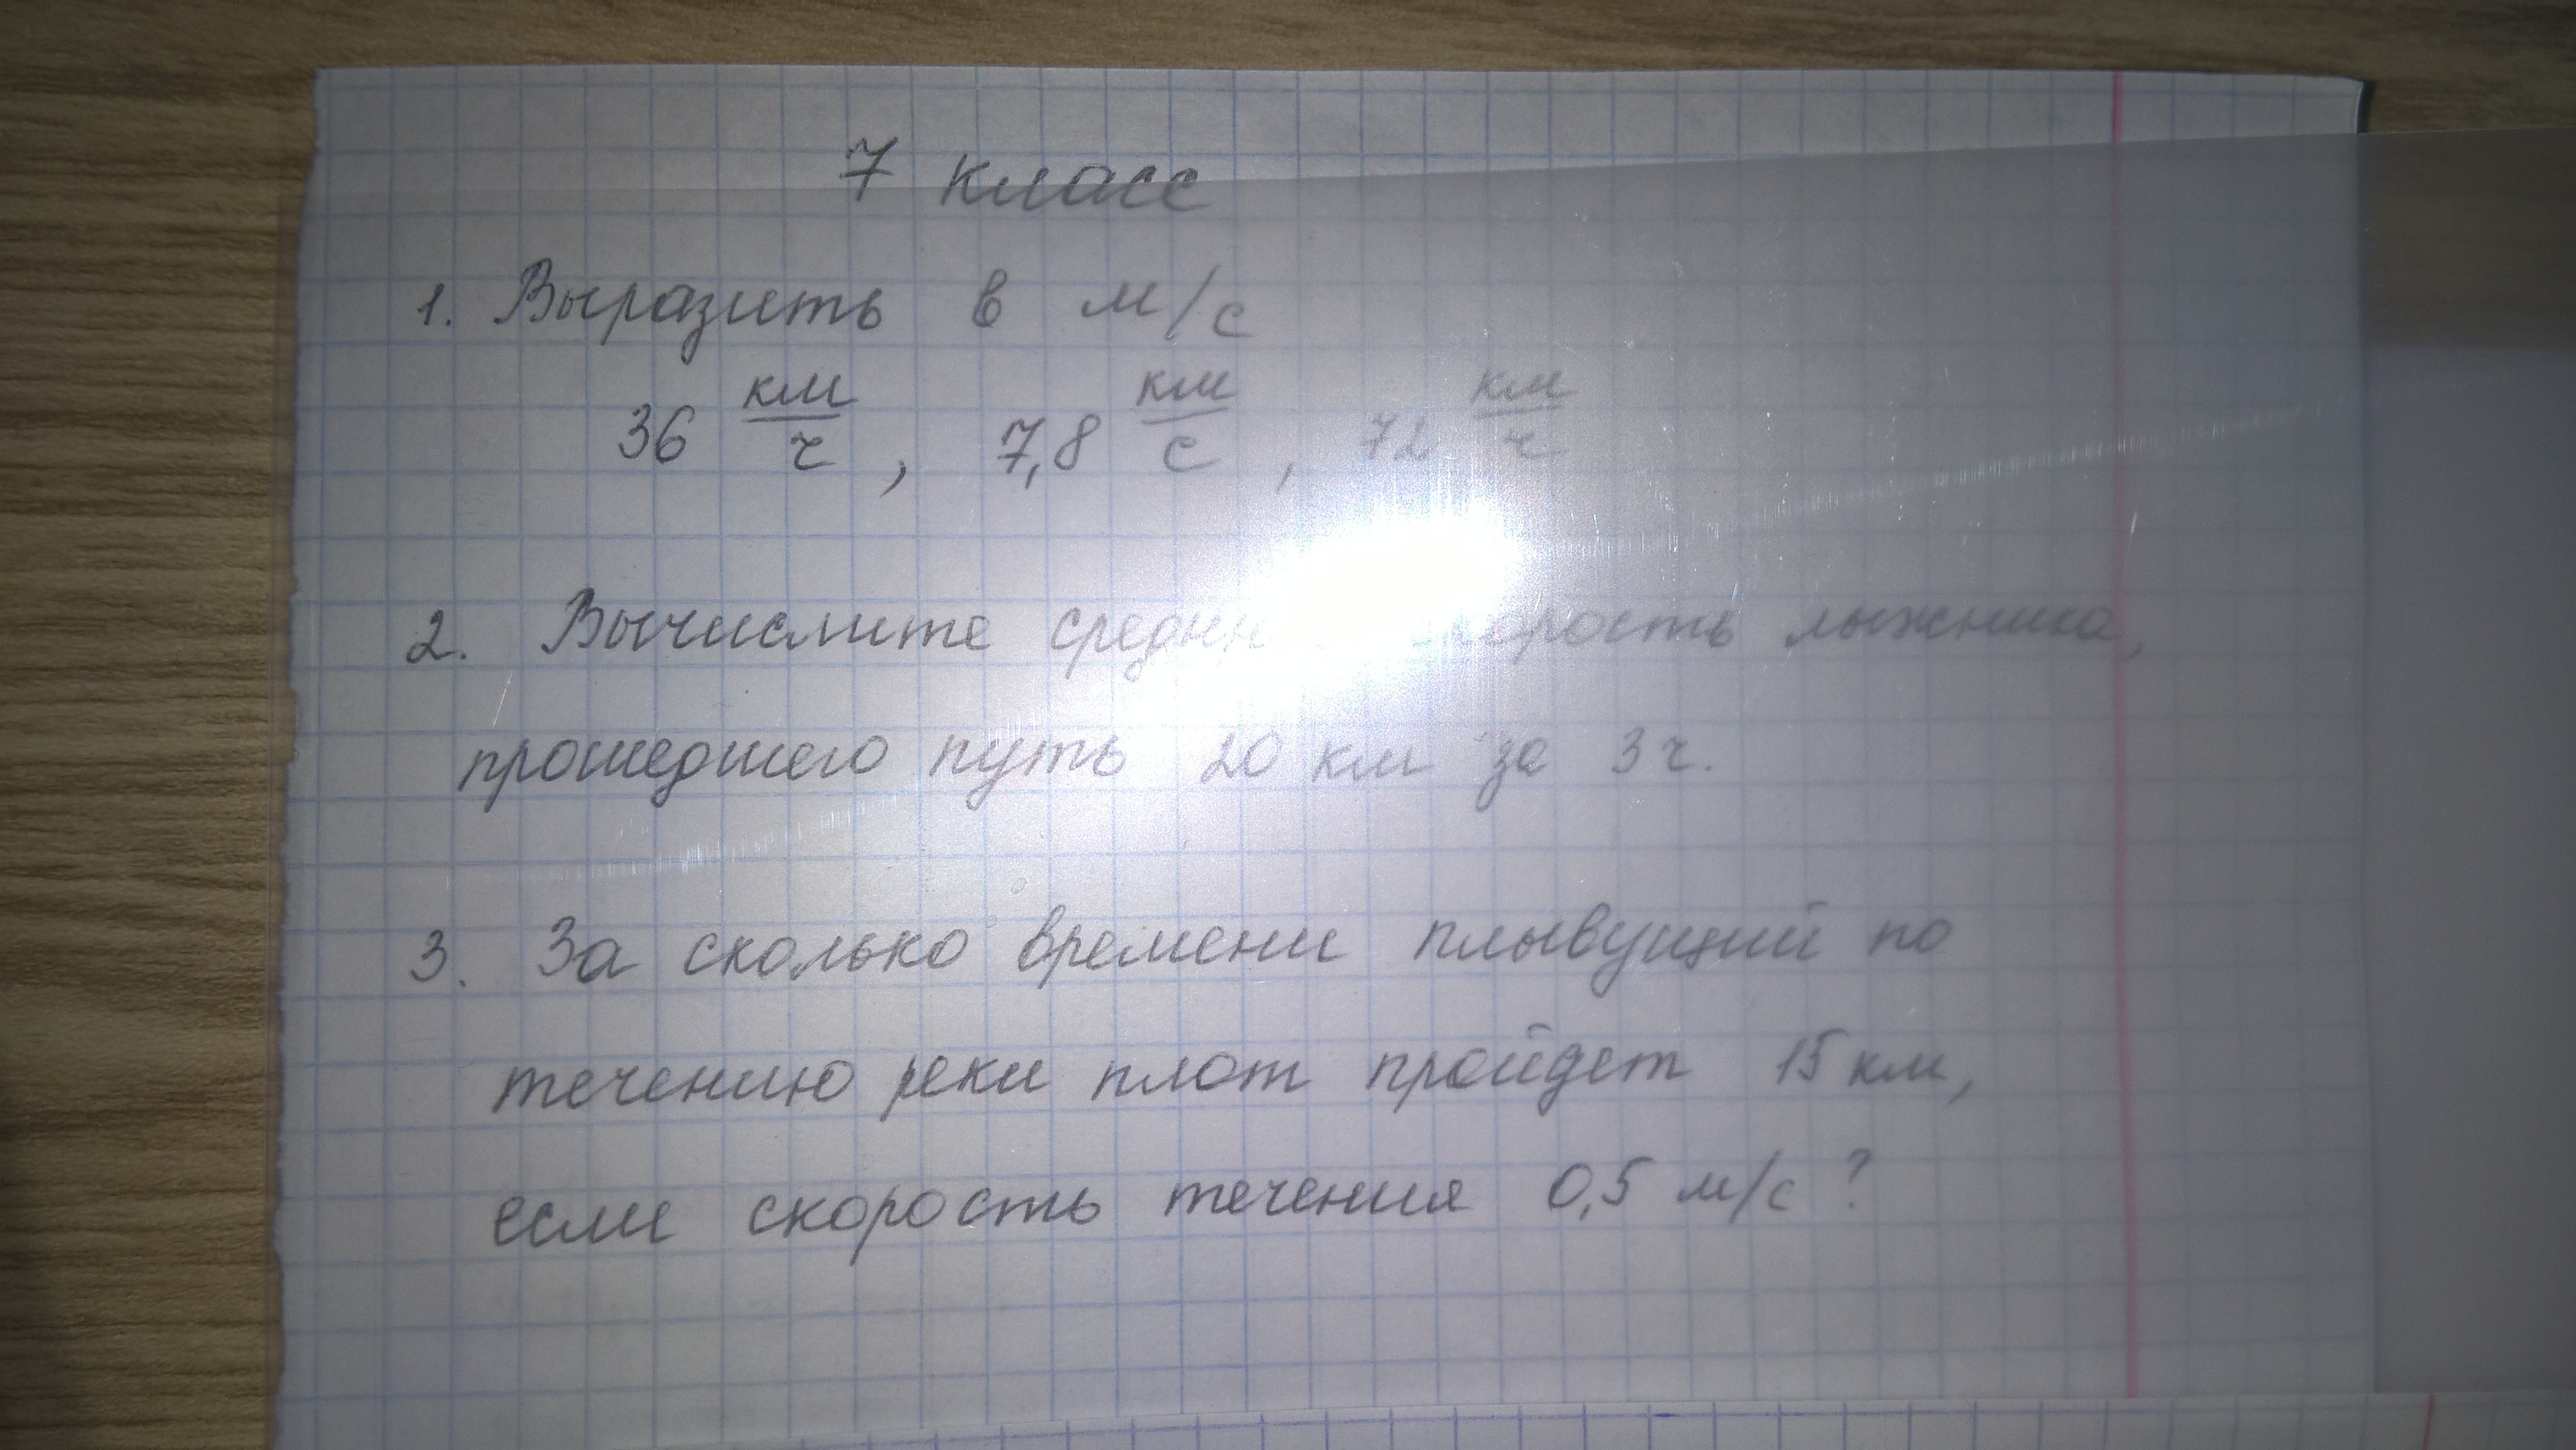 7 класс
1. Выразить в м/с
36 км/ч, 7,8 км/с, 72 км/ч
2. Вычислите скорость лыжника,
прошедшего путь 20 км за 3 ч.
3. За сколько времени плывущий по
течению реки плот пройдет 15 км,
если скорость течения 0,5 м/с?